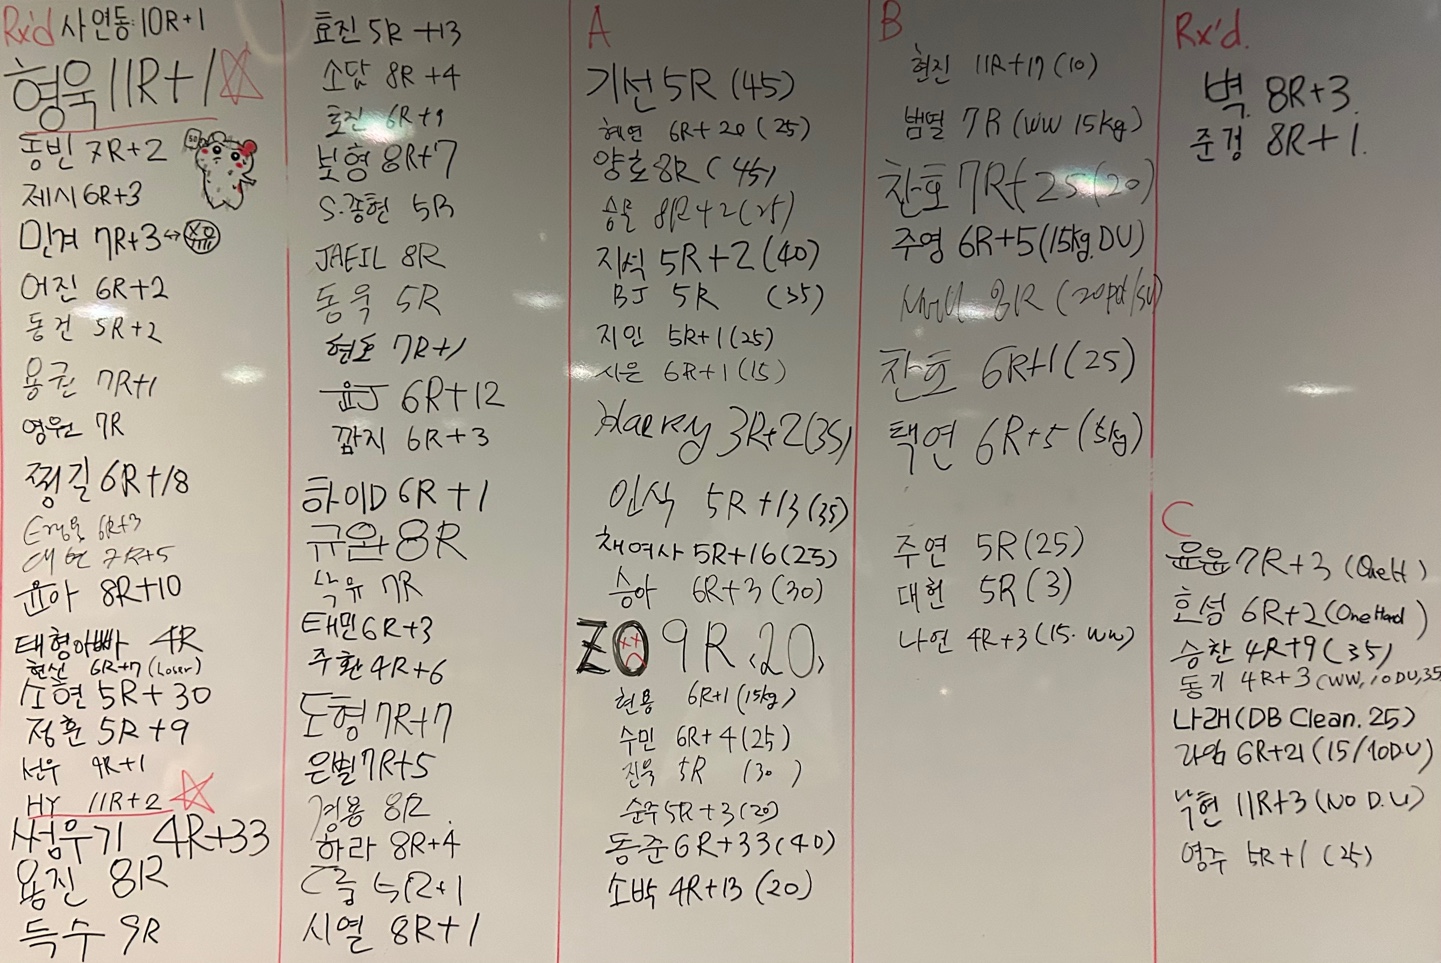 Rx'd 사연동 10R+1
형욱 11R+1
동빈 7R+2
제시 6R+3
민겨 7R+3
어진 6R+2
동건 5R+2
용권 7R+1
영원 7R
찡길 6R+18
6R+3
대현 7R+5
윤아 8R+10
태형아빠 4R
현실 6R+7 (Loser)
소현 5R+30
정환 5R+9
선우 9R+1
HY 11R+2
썸우기 4R+33
용진 8R
득수 9R
효진 5R+13
소답 8R+4
호진 6R+9
보형 8R+7
S.종현 5R
JAEIL 8R
동욱 5R
현호 7R+1
윤J 6R+12
깜지 6R+3
하이D 6R+1
규완 8R
낙유 7R
태민 6R+3
주환 4R+6
도형 7R+7
은별 7R+5
경용 8R
하라 8R+4
5R+1
시열 8R+1
A
기선 5R (45)
혜연 6R+20 (25)
양호 8R (45)
승모 8R+2 (25)
지석 5R+2 (40)
BJ 5R (35)
지인 5R+1 (25)
시은 6R+1 (15)
Harry 3R+2 (35)
인식 5R+13 (35)
채여사 5R+16 (25)
승아 6R+3 (30)
ZO 9R (20)
현용 6R+1 (15kg)
수민 6R+4 (25)
진욱 5R (30)
순주 5R+3 (20)
동준 6R+33 (40)
소박 4R+13 (20)
B
현진 11R+17 (10)
범열 7R (WW 15kg)
찬호 7R+25 (20)
주영 6R+5 (15kg.DU)
8R
찬호 6R+1 (25)
택연 6R+5
주연 5R (25)
대헌 5R (3)
나연 4R+3 (15. WW)
Rx'd.
벽. 8R+3.
준경 8R+1.
C
윤윤 7R+3 (One H)
호섬 6R+2 (One Hand)
승찬 4R+9 (35)
동기 4R+3 (WW, 10DU, 35
나래 (DB Clean. 25)
라엄 6R+21 (15/10D.U)
낙현 11R+3 (NO D.U)
영주 5R+1 (25)